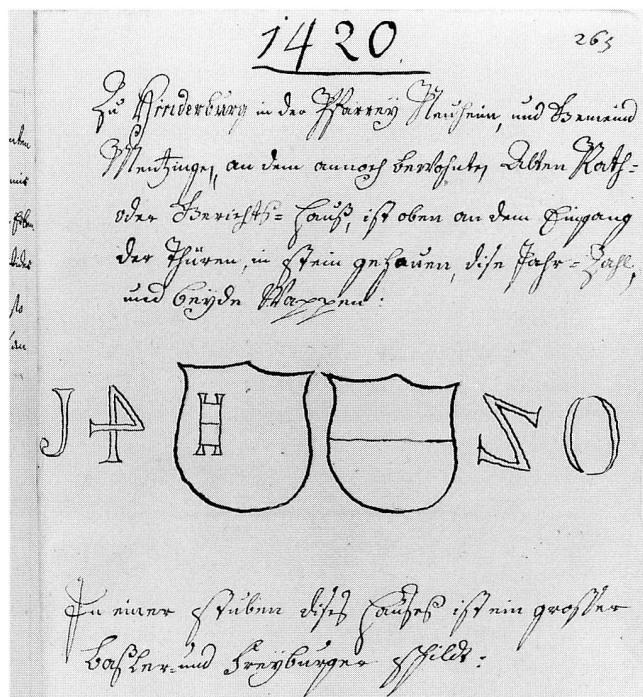 1420.
263
Zu Hinderburg in der Pfarrey Neuheim, und Gemeind
Mentzingen, an dem annoch bewohnten Alten Rath-
oder Gerichts-Hauß, ist oben an dem Eingang
der Thüren, in stein gehauen, dise Jahr-Zahl,
und beyde Wappen:
14 H 20
In einer stuben dises Hauses ist ein grosser
Baßler- und Freyburger schildt: